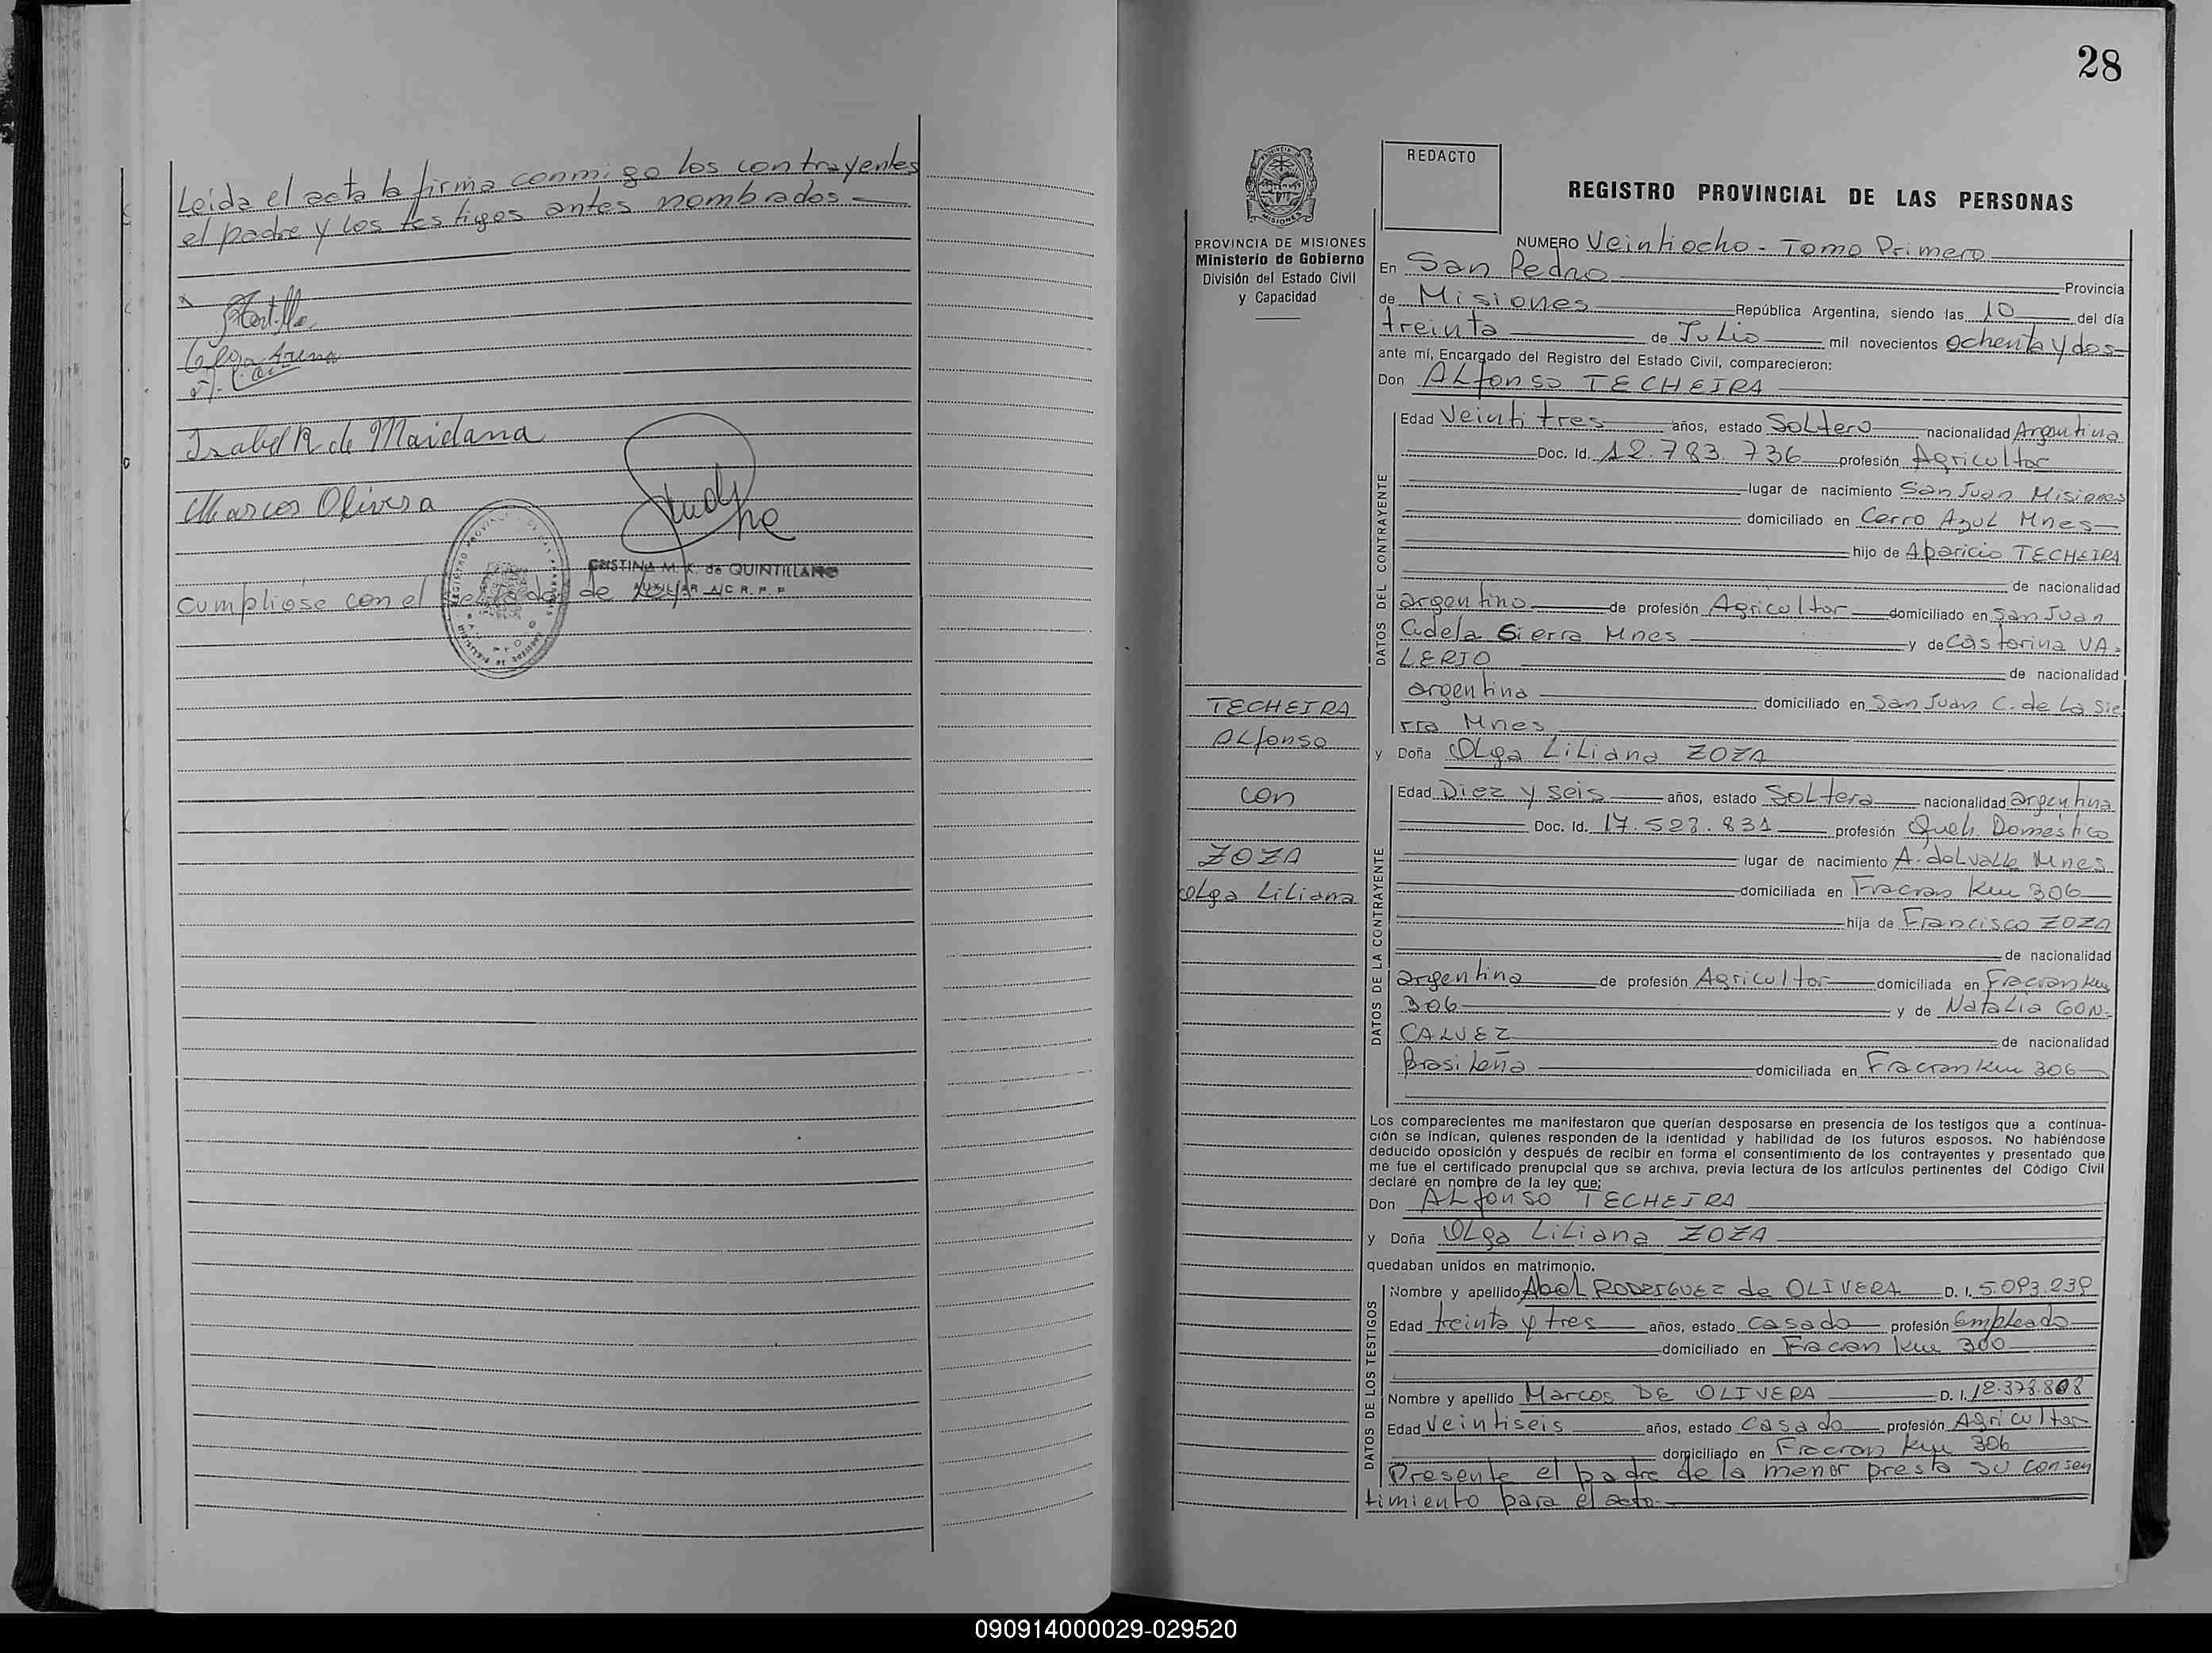 Leida el acta la firma conmigo los contrayentes
el padre y los testigos antes nombrados
Isabel R de Maidana
Marcos Olivera
CRISTINA M. K. de QUINTILLANO
AUXILIAR A/C R. P. P
Cumpliose con el de
28
REDACTO
REGISTRO PROVINCIAL DE LAS PERSONAS
PROVINCIA DE MISIONES
Ministerio de Gobierno
División del Estado Civil
y Capacidad
NUMERO Veintiocho - Tomo Primero
En San Pedro Provincia
de Misiones República Argentina, siendo las 10 del día
treinta de Julio mil novecientos ochenta y dos
ante mí, Encargado del Registro del Estado Civil, comparecieron:
Don ALfonso TECHEIRA
DATOS DEL CONTRAYENTE
Edad Veintitres años, estado SoLtero nacionalidad Argentina
Doc. Id. 12.783.736 profesión Agricultor
lugar de nacimiento San Juan Misiones
domiciliado en Cerro AzuL Mnes
hijo de Aparicio TECHEIRA
de nacionalidad
argentino de profesión Agricultor domiciliado en San Juan
Cadela Sierra Mnes y de Castorina VA-
LERIO de nacionalidad
argentina domiciliado en San Juan C. de La Sie
rra Mnes
TECHEIRA
ALfonso
con
ZOZA
OLga LiLiana
y Doña OLga LiLiana ZOZA
DATOS DE LA CONTRAYENTE
Edad Diez y seis años, estado SoLtera nacionalidad argentina
Doc. Id. 17.523.831 profesión Queh. Domestico
lugar de nacimiento A. deL vaLLe Mnes
domiciliada en Fracran Km 306
hija de Francisco ZOZA
de nacionalidad
argentina de profesión Agricultor domiciliada en Fracran Km
306 y de NataLia GON-
CALVEZ de nacionalidad
BrasiLeña domiciliada en Fracran Km 306
Los comparecientes me manifestaron que querían desposarse en presencia de los testigos que a continua-
ción se indican, quienes responden de la identidad y habilidad de los futuros esposos. No habiéndose
deducido oposición y después de recibir en forma el consentimiento de los contrayentes y presentado que
me fue el certificado prenupcial que se archiva, previa lectura de los artículos pertinentes del Código Civil
declaré en nombre de la ley que:
Don ALfonso TECHEIRA
y Doña OLga LiLiana ZOZA
quedaban unidos en matrimonio.
DATOS DE LOS TESTIGOS
Nombre y apellido AbeL RODRIGUEZ de OLIVERA D. I. 5.093.239
Edad treinta y tres años, estado casado profesión empleado
domiciliado en Fracran Km 300
Nombre y apellido Marcos DE OLIVERA D. I. 12.378.808
Edad Veintiseis años, estado casado profesión Agricultor
domiciliado en Fracran Km 306
Presente el padre de la menor presta su consen
timiento para el acto.
090914000029-029520